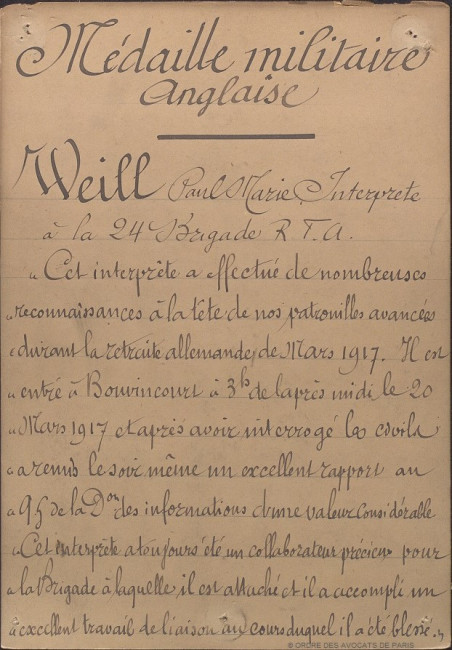 Médaille militaire
Anglaise
Weill Paul Marie, Interprete
à la 24 Brigade R. F. A.
" Cet interprète a effectué de nombreuses
" reconnaissances à la tête de nos patrouilles avancées
" durant la retraite allemande, de Mars 1917. Il est
" entré à Bouvincourt à 3h de l'après midi le 20
" Mars 1917 et après avoir interrogé les civils
" a remis le soir même un excellent rapport au
" QG de la Don des informations d'une valeur considérable
" Cet interprète a toujours été un collaborateur précieux pour
" la Brigade à laquelle il est attaché et il a accompli un
" excellent travail de liaison au cours duquel il a été blessé. "
© ORDRE DES AVOCATS DE PARIS